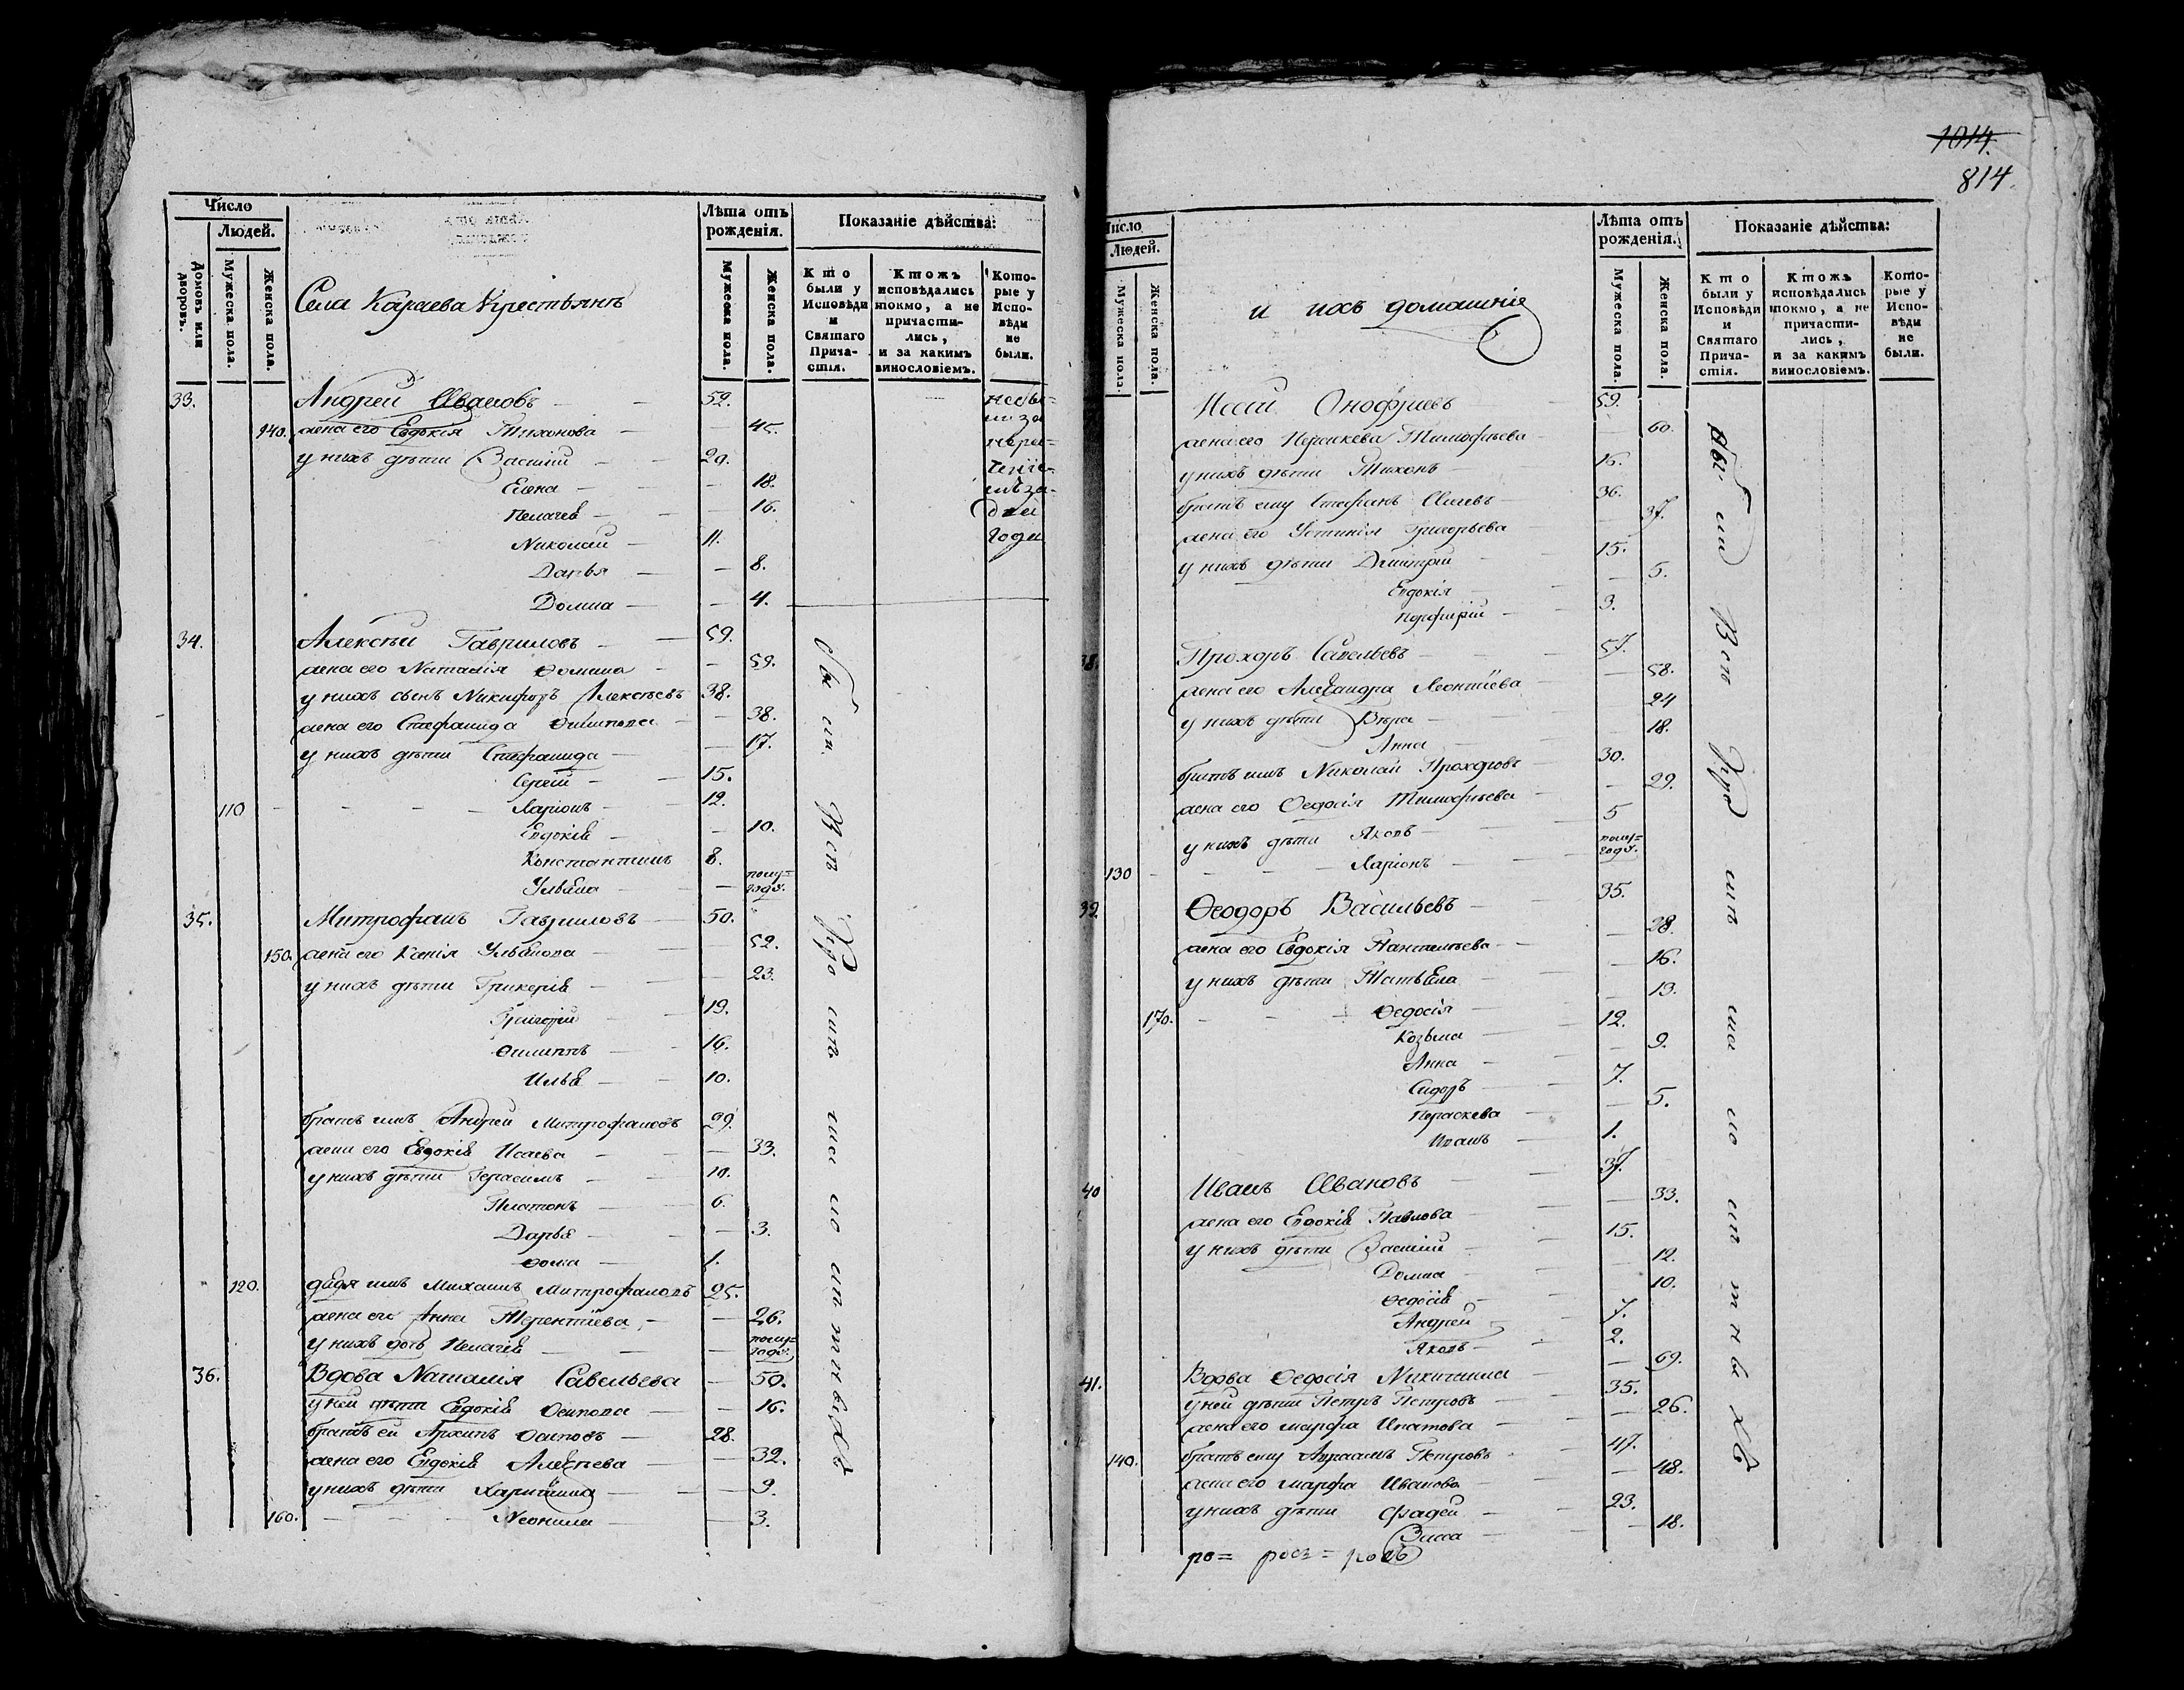 1014.
814
Число
Людей.
Домовъ или дворовъ.
Мужеска пола.
Женска пола.
Лѣта отъ рожденія.
Мужеска пола.
Женска пола.
Показаніе дѣйства:
Кто были у Исповѣди и Святаго Прича-стія.
Ктожъ исповѣдались токмо, а не причасти-лись, и за какимъ винословіемъ.
Кото-рые у Испо-вѣди не были.
Села Караева Крестьянъ
33. Андрей Ивановъ 52.
140. жена его Евдокія Тихонова 45.
у нихъ дѣти Василій 20.
Елена 18.
Пелагея 16.
Николай 11.
Дарья 8.
Домна 4.
года
34. Алексѣй Гавриловъ 59.
жена его Наталія Фомина 59.
у нихъ сынъ Никифоръ Алексѣевъ 38.
жена его Стефанида Филипова 38.
у нихъ дѣти Стефанида 17.
Сергѣй 15.
110 Ларіонъ 12.
Евдокія 10.
Константинъ 8.
Ульяна полу=года.
35. Митрофанъ Гавриловъ 50.
150. жена его Ксенія Ульянова 52.
у нихъ дѣти Гликерія 23.
Григорій 19.
Филиппъ 16.
Илья 10.
братъ имъ Андрей Митрофановъ 29.
жена его Евдокія Исаева 33.
у нихъ дѣти Герасимъ 10.
Платонъ 6.
Дарья 3.
Фома 1.
120. дядя имъ Михаилъ Митрофановъ 25.
жена его Анна Терентіева 26.
у нихъ дочь Пелагея полу=года.
36. Вдова Наталія Савельева 50.
у ней дѣти Евдокія Осипова 16.
братъ ей Архипъ Осиповъ 28.
жена его Евдокія Алексѣева 32.
у нихъ дѣти Харитина 9.
160. Неонила 3.
Были Вси у сего
Число
Людей.
Мужеска пола.
Женска пола.
и ихъ домашнія
Лѣта отъ рожденія.
Мужеска пола.
Женска пола.
Показаніе дѣйства:
Кто были у Исповѣди и Святаго Прича-стія.
Ктожъ исповѣдались токмо, а не причасти-лись, и за какимъ винословіемъ.
Кото-рые у Испо-вѣди не были.
Онофріевъ 59.
жена его Параскева Тимофѣева 60.
у нихъ дѣти Тихонъ 16.
братъ ему Стефанъ 36.
жена его Устинія Григорьева 37.
у нихъ дѣти Дмитрій 15.
Евдокія 5.
Порфирій 3.
38. Прохоръ Савельевъ 57.
жена его Александра Леонтіева 58.
у нихъ дѣти Вѣра 24
Анна 18.
братъ имъ Николай Прохоровъ 30.
жена его Федосія Тимофѣева 29.
у нихъ дѣти Яковъ 5
130 Ларіонъ полу=года.
39. Феодоръ Васильевъ 35.
жена его Евдокія Пантелѣева 28.
у нихъ дѣти Татьяна 16.
170. Федосія 13.
Козьма 12.
Анна 9.
Сидоръ 7.
Параскева 5.
Иванъ 1.
40 Иванъ Ивановъ 37.
жена его Евдокія Павлова 33.
у нихъ дѣти Василій 15.
Домна 12.
Федосія 10.
Андрей 7.
Яковъ 2.
41. Вдова Федосія Никитина 69.
у ней дѣти Петръ Петровъ 35.
жена его Марфа Ипатова 26.
140. братъ ему Авраамъ Петровъ 47.
жена его Марфа Иванова 48.
у нихъ дѣти Фадей 23.
18.